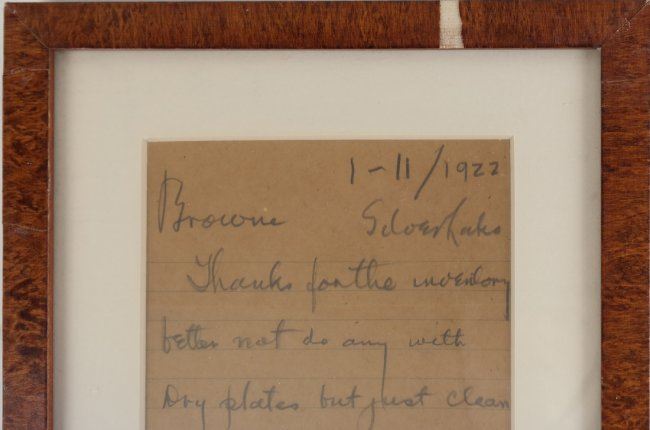 1-11/1922
Browne Silver Lake
Thanks for the inventory
better not do any with
Dry plates but just clean